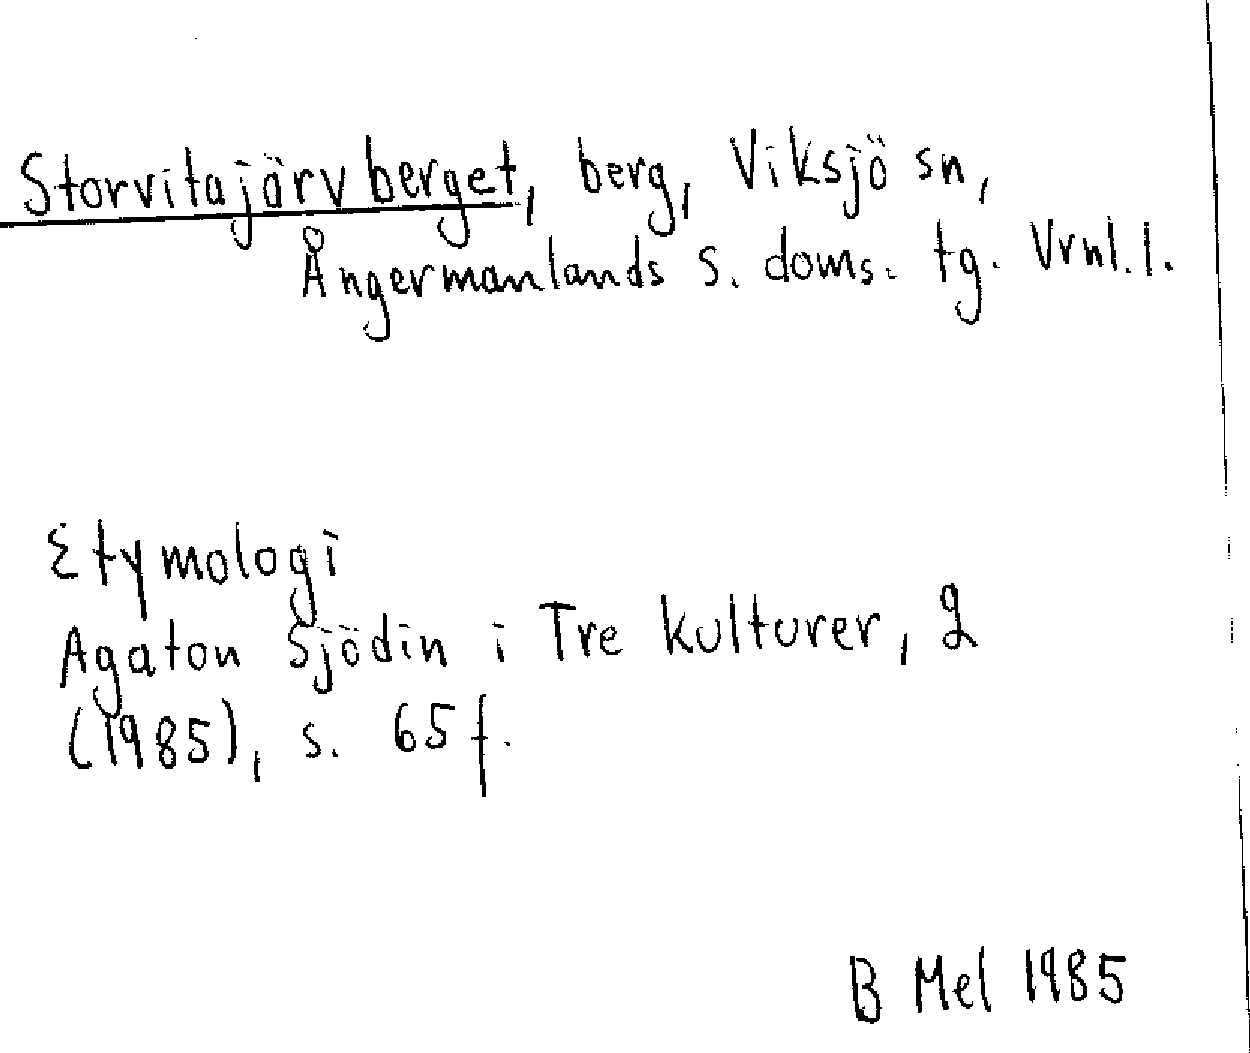 Storvitajärvberget, berg, Viksjö sn,
Ångermanlands s. doms. tg. Vrnl.l.
Etymologi
Agaton Sjödin i Tre kulturer, 2
(1985), s. 65 f.
B Mel 1985